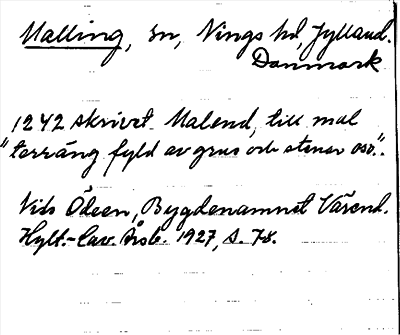 Malling, sn, Nings hd, Jylland.
Danmark
1242 skrivet Malend, till mal
"terräng fyld av grus och stenar osv."
Nils Ödeen, Bygdenamnet Värend.
Hylt.-Cav. Årsb. 1927, s. 78.